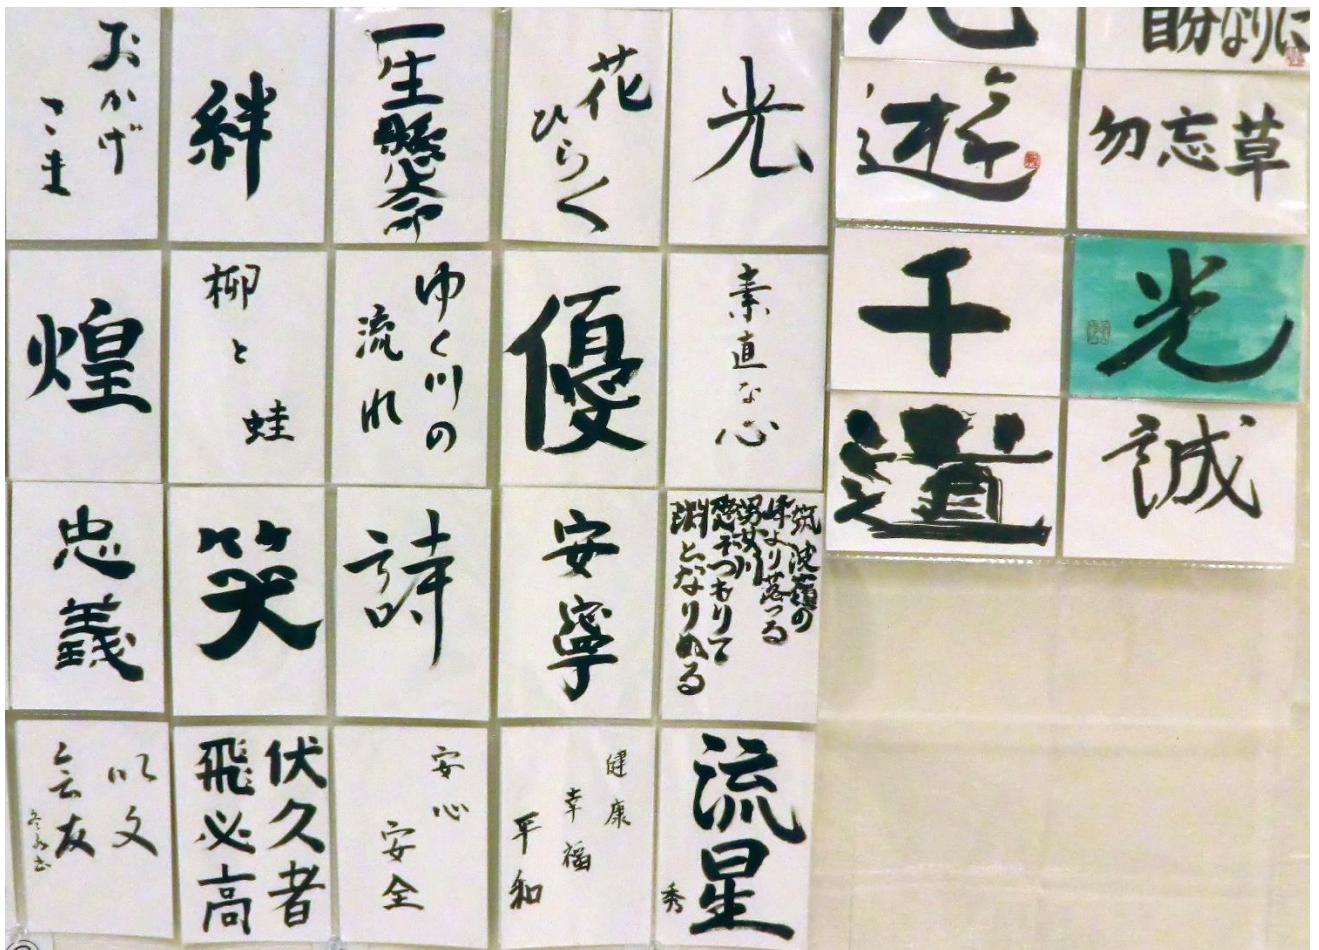 おかげ
さま
絆
一生懸命
花
ひらく
光
煌
柳と蛙
ゆく川の
流れ
優
素直な心
忠義
笑
詩
安寧
筑波嶺の
峰より落つる
男女川
恋ぞつもりて
淵となりぬる
以文
会友
伏久者
飛必高
安心
安全
健康
幸福
平和
流星
秀
自分なりに
遊
勿忘草
千
光
道
誠